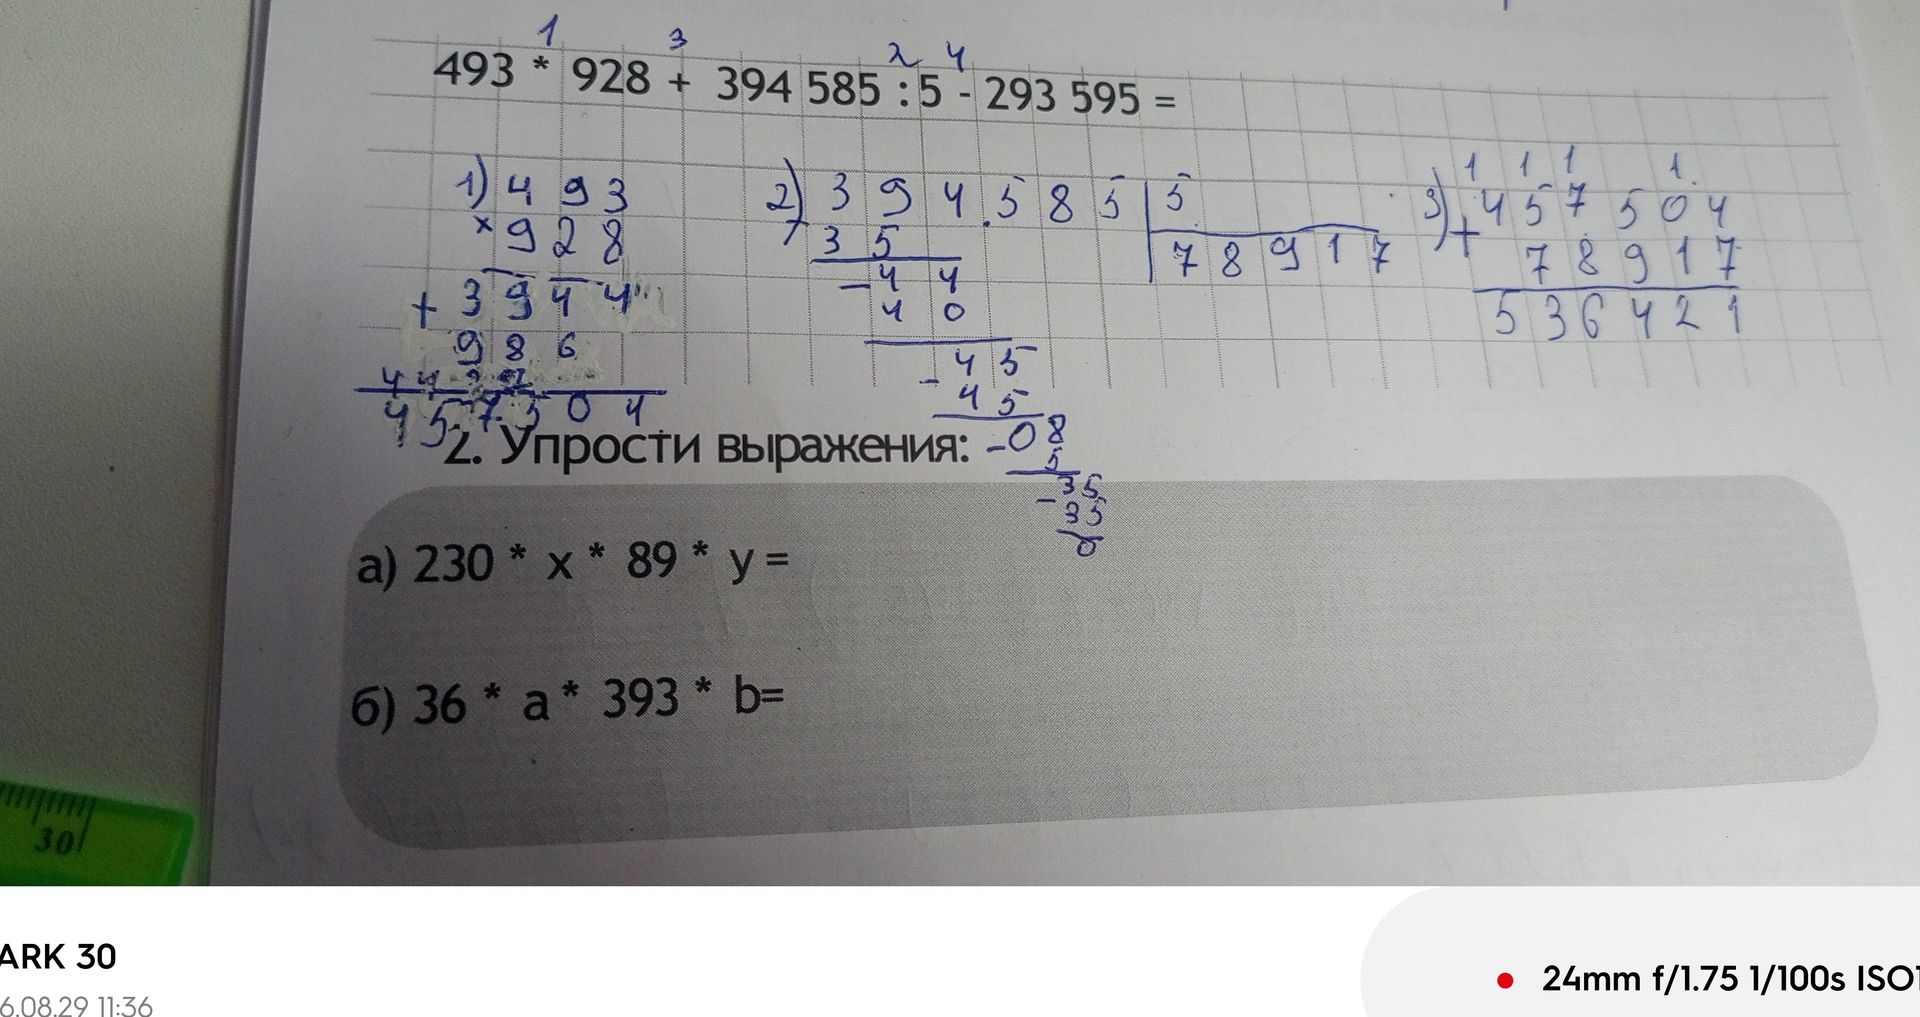 1 3 2 4
493 * 928 + 394 585 : 5 - 293 595 =
1) 493
× 928
+ 3944
986
44
457504
2) 394.585 | 5
35 78917
- 44
40
- 45
45
- 08
5
- 35
35
0
1 1 1 1
3) + 457 504
78917
536421
2. Упрости выражения:
а) 230 * x * 89 * y =
б) 36 * a * 393 * b=
30
ARK 30
6.08.29 11:36
24mm f/1.75 1/100s ISO1